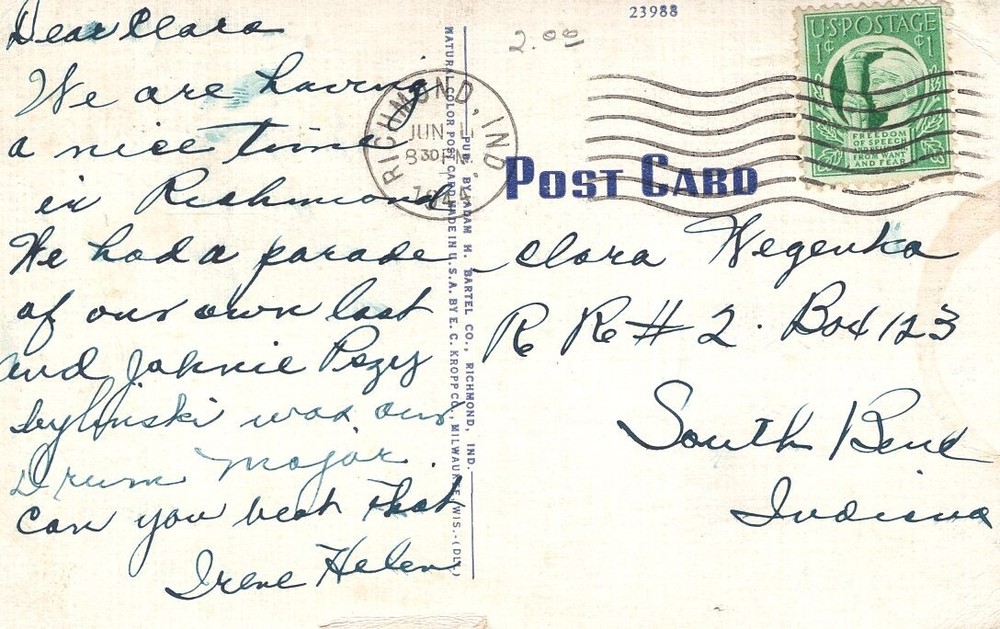 Dear Clara
We are having
a nice time
in Richmond
We had a parade
of our own last
and Johnie
was our
Drum Major.
Can you beat that
Irene Helen
NATURAL COLOR POST CARD MADE IN U.S.A. BY E. C. KROPP CO., MILWAUKEE, WIS.-(DLY.)
PUB. BY ADAM H. BARTEL CO., RICHMOND, IND.
23988
2.00
RICHMOND, IND
JUN
8 30 PM
POST CARD
U.S. POSTAGE
1¢ ¢1
FREEDOM
OF SPEECH
AND RELIGION
FROM WANT
AND FEAR
Clara Wegenka
R R # 2. Box 123
South Bend
Indiana